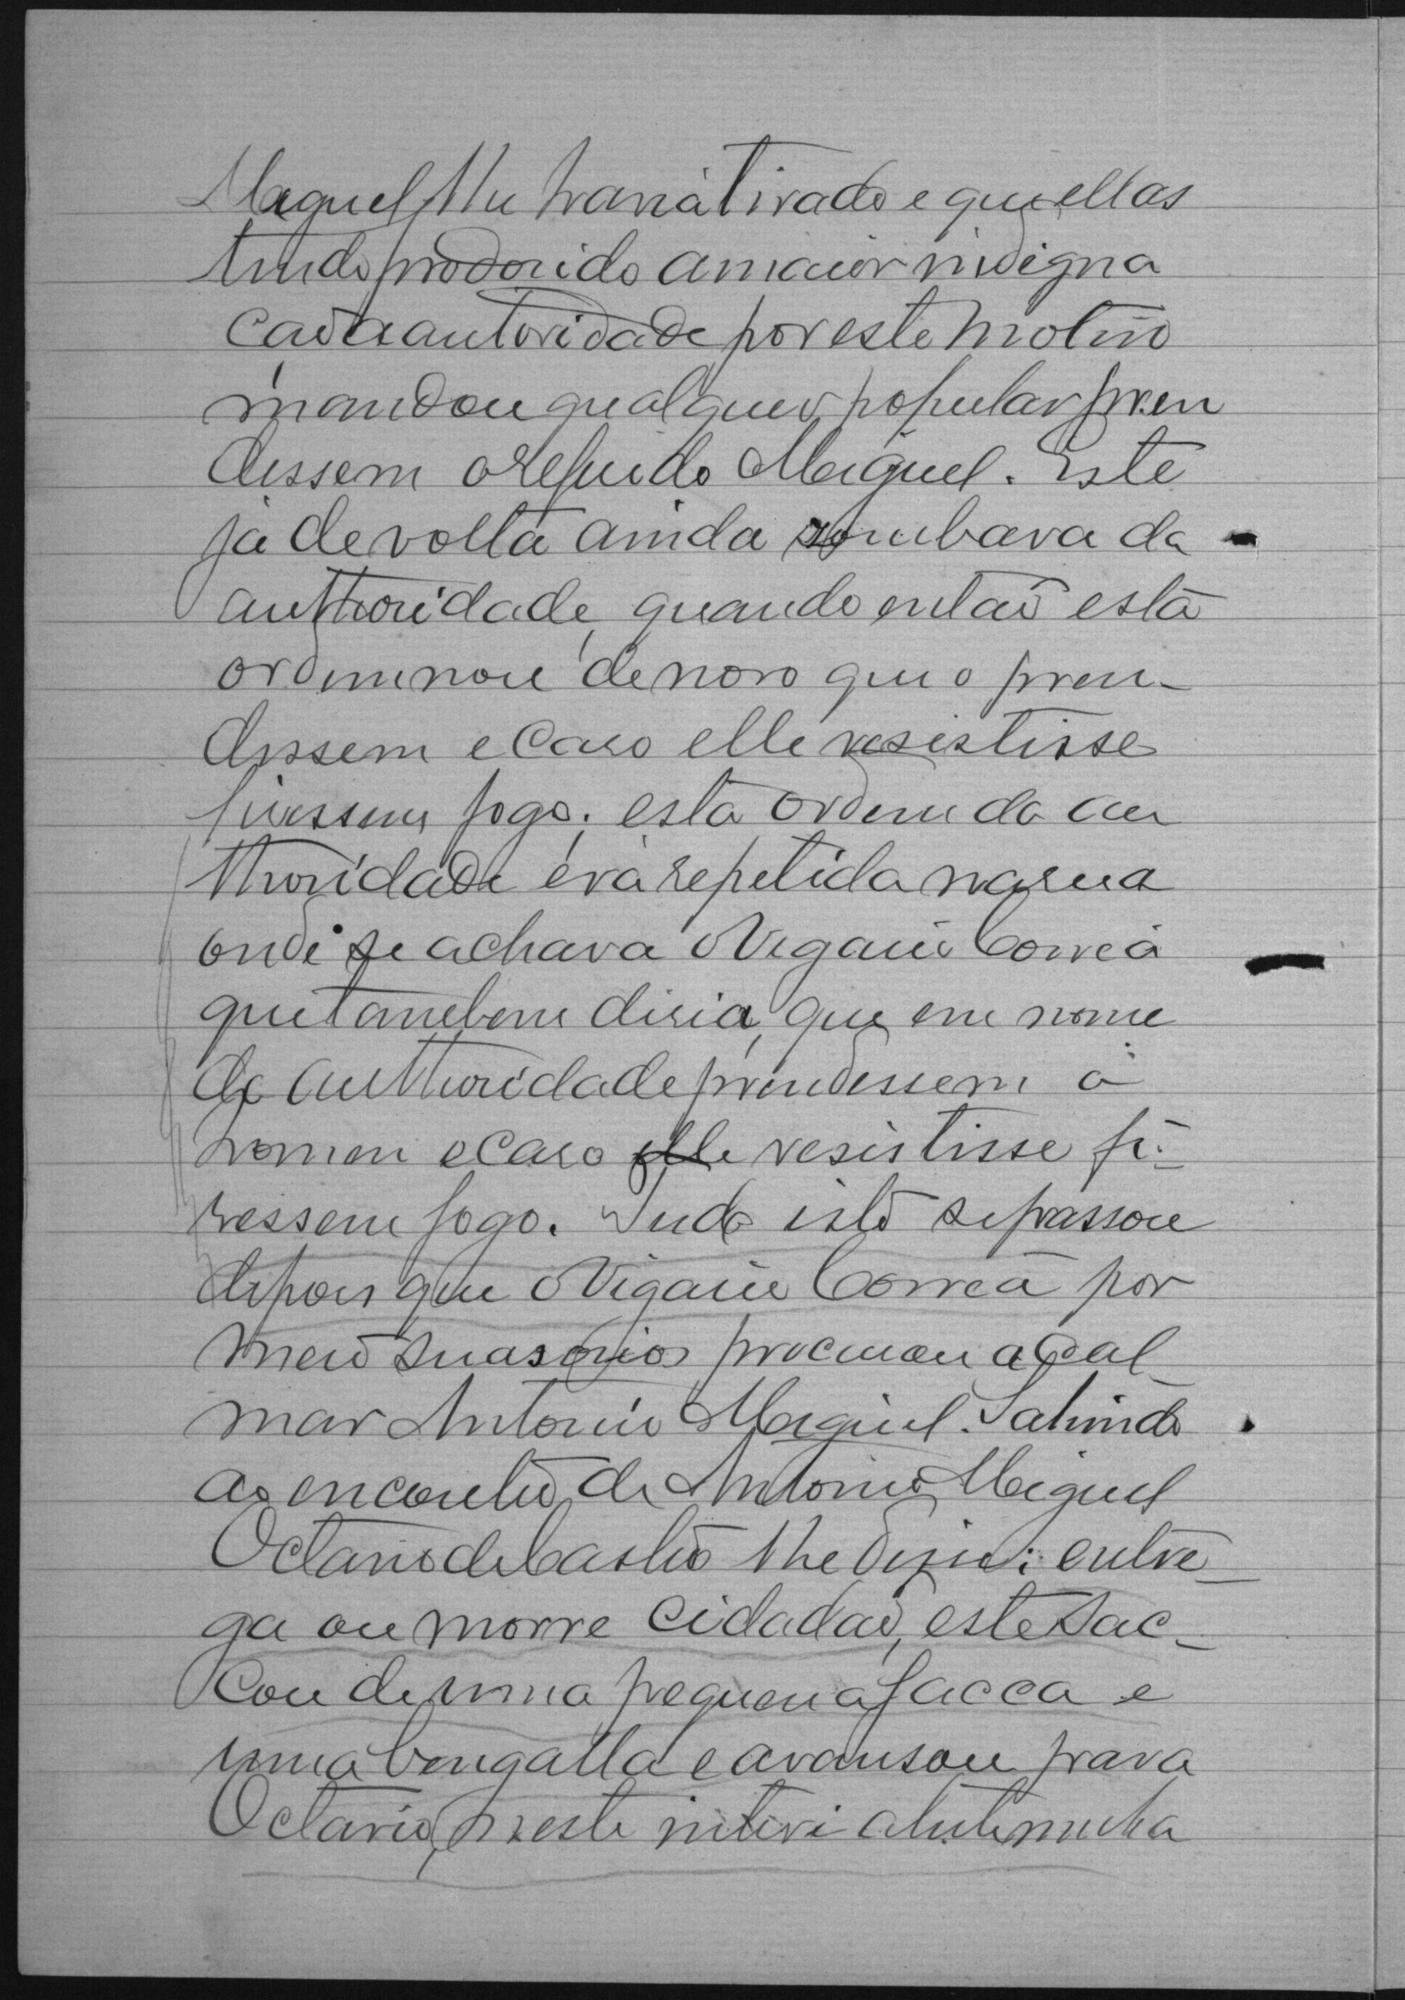 Miguel lhe havia tirado e que ellas
tendo prodosido a maior indigna
cão a autoridade por este motivo
mandou qualquer popular pren
dessem o refirido Miguel. Este
já de volta ainda zombava da
authoridade, quando então esta
ordennou de novo que o pren-
dessem e caso elle resistisse
fisessem fogo; esta ordem da au
thoridade éra repetida na rua
onde se achava o Vigario Corrêa
que tambem disia, que em nome
da authoridade prendessem o
homem e caso elle resistisse fi-
sessem fogo. Tudo isto se passou
depois que o Vigario Corrêa por
meio suasorios procurou acal
mar Antonio Miguel. Sahindo
ao encontro de Antonio Miguel
Octavio de Castro lhe disse: entre-
ga ou morre cidadão, este sac-
cou de uma pequena facca e
uma bengalla e avansou para
Octavio, neste interi a testemunha